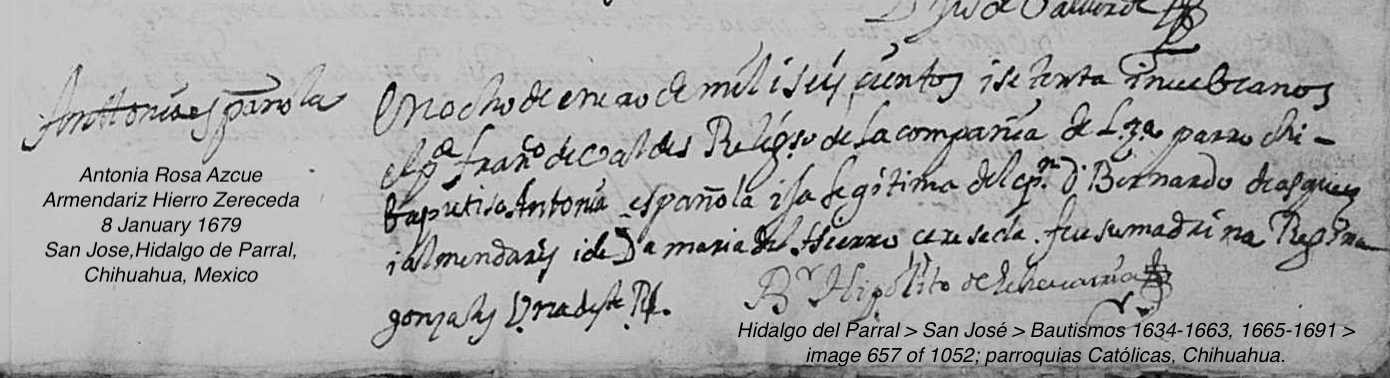 Anttonia española
En ocho de enero de mil i seis çientos i setenta i nuebe anos
el pe franco de valdes Religioso de la compañia de Lza parrochi-
baptiso Antonia española ija legitima del cpn D Bernardo de asque
i almendaris i de Da maria del hierro cereseda. fue su madrina Regina
gonzales Vna deste Rl.
Br Hipolito de Echevarria
Antonia Rosa Azcue
Armendariz Hierro Zereceda
8 January 1679
San Jose,Hidalgo de Parral,
Chihuahua, Mexico
Hidalgo del Parral > San José > Bautismos 1634-1663, 1665-1691 >
image 657 of 1052; parroquias Católicas, Chihuahua.